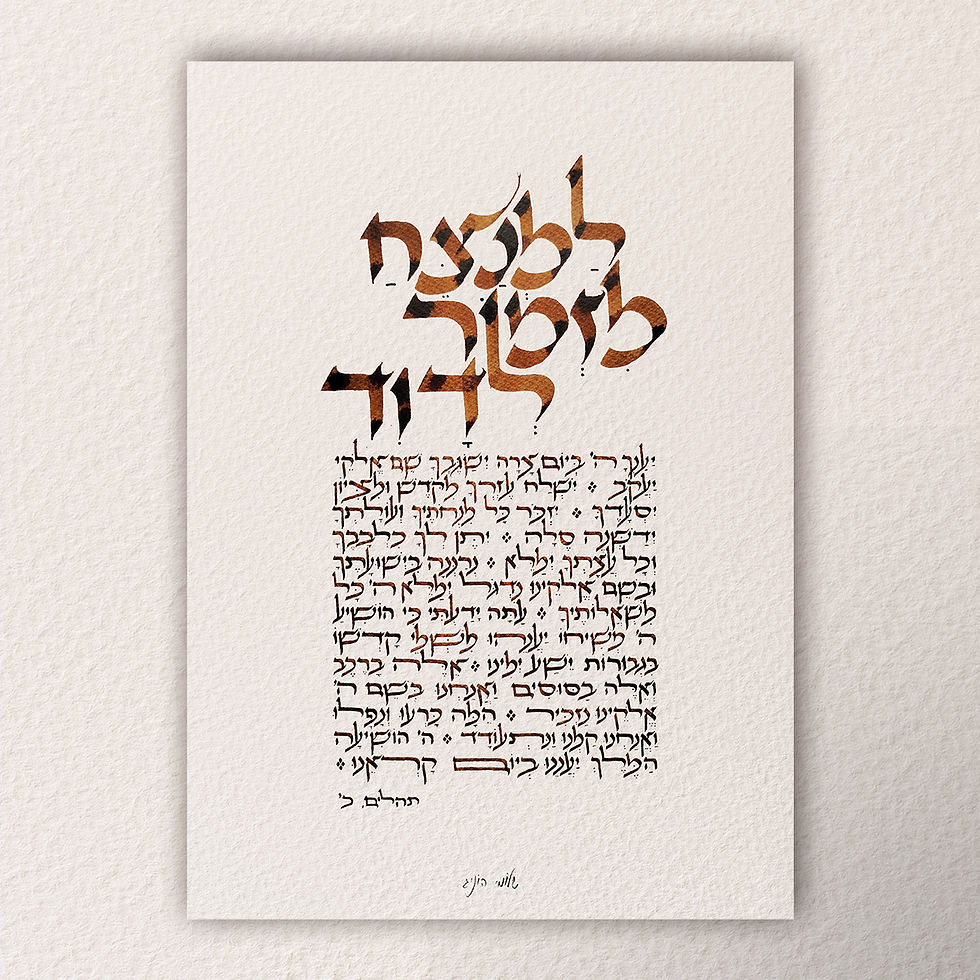 לַמְנַצֵּחַ
מִזְמוֹר
לְדָוִד
יַעַנְךָ ה' בְּיוֹם צָרָה יְשַׂגֶּבְךָ שֵׁם אֱלֹקֵי
יַעֲקֹב ❖ יִשְׁלַח עֶזְרְךָ מִקֹּדֶשׁ וּמִצִּיּוֹן
יִסְעָדֶךָּ ❖ יִזְכֹּר כָּל מִנְחֹתֶיךָ וְעוֹלָתְךָ
יְדַשְּׁנֶה סֶלָה ❖ יִתֶּן לְךָ כִלְבָבֶךָ
וְכָל עֲצָתְךָ יְמַלֵּא ❖ נְרַנְּנָה בִּישׁוּעָתֶךָ
וּבְשֵׁם אֱלֹקֵינוּ נִדְגֹּול יְמַלֵּא ה' כָּל
מִשְׁאֲלוֹתֶיךָ ❖ עַתָּה יָדַעְתִּי כִּי הוֹשִׁיעַ
ה' מְשִׁיחוֹ יַעֲנֵהוּ מִשְּׁמֵי קָדְשׁוֹ
בִּגְבוּרוֹת יֵשַׁע יְמִינוֹ ❖ אֵלֶּה בָרֶכֶב
וְאֵלֶּה בַסּוּסִים וַאֲנַחְנוּ בְּשֵׁם ה'
אֱלֹקֵינוּ נַזְכִּיר ❖ הֵמָּה כָּרְעוּ וְנָפָלוּ
וַאֲנַחְנוּ קַּמְנוּ וַנִּתְעוֹדָד ❖ ה' הוֹשִׁיעָה
הַמֶּלֶךְ יַעֲנֵנוּ בְיוֹם קָרְאֵנוּ ❖
תהלים, כ'
שלומי הוניג